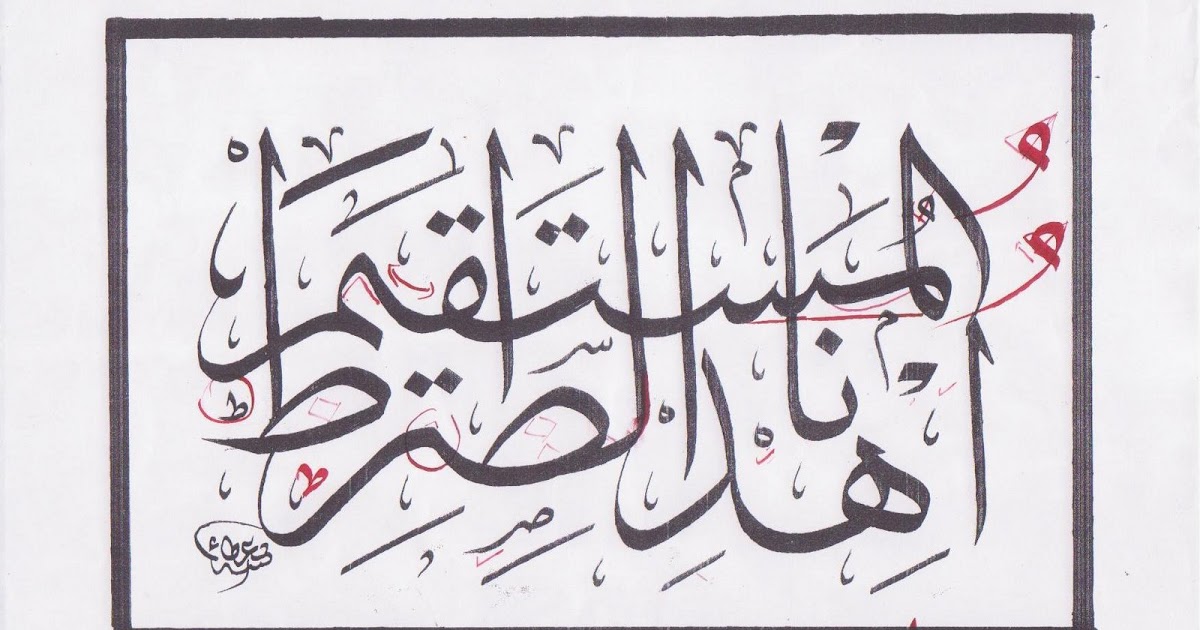 اهدنا الصراط
المستقيم